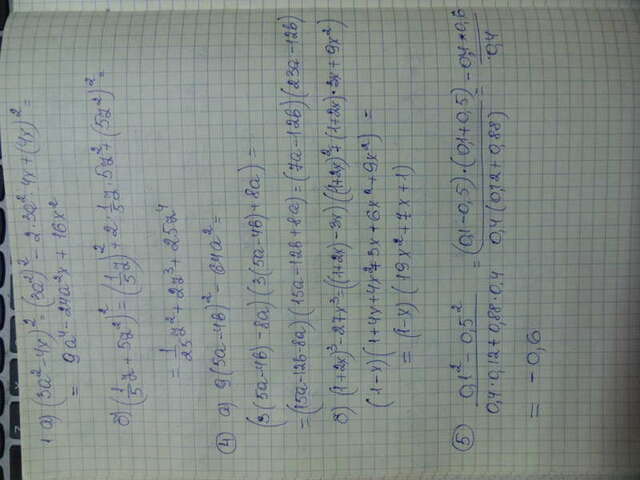 1. а) (3a² - 4x)² = (3a²)² - 2·3a²·4x + (4x)² =
= 9a⁴ - 24a²x + 16x²
б) (1/5 y + 5y²)² = (1/5 y)² + 2·1/5 y·5y² + (5y²)² =
= 1/25 y² + 2y³ + 25y⁴
④ а) 9(5a - 4b)² - 64a² =
(3(5a - 4b) - 8a)(3(5a - 4b) + 8a) =
= (15a - 12b - 8a)(15a - 12b + 8a) = (7a - 12b)(23a - 12b)
б) (1+2x)³ - 27x³ = ((1+2x) - 3x)((1+2x)² + (1+2x)·3x + 9x²)
(1-x)(1 + 4x + 4x² + 3x + 6x² + 9x²) =
= (1-x)(19x² + 7x + 1)
⑤ (0,1² - 0,5²)/(0,4·0,12 + 0,88·0,4) = ((0,1 - 0,5)·(0,1 + 0,5))/(0,4(0,12 + 0,88)) = (-0,4·0,6)/0,4
= -0,6